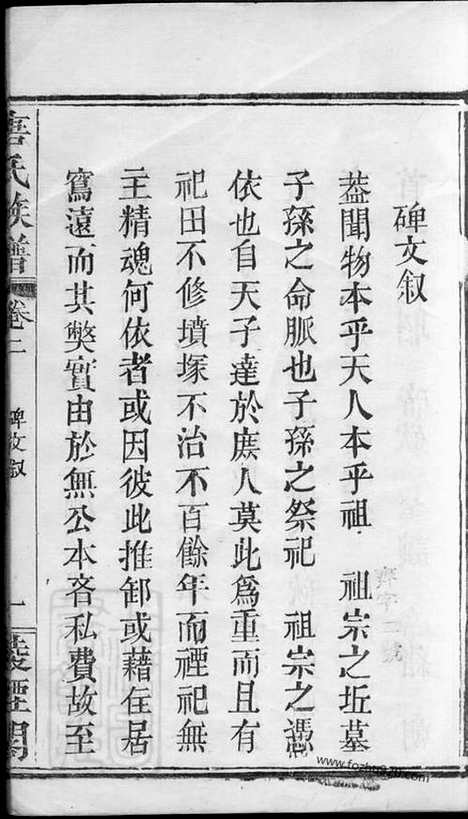 碑文叙
葢聞物本乎天人本乎祖 祖宗之坵墓
子孫之命脈也子孫之祭祀 祖宗之憑
依也自天子達於庶人莫此為重而且有
祀田不修墳塚不治不百餘年而禋祀無
主精魂何依者或因彼此推卸或藉住居
寫遠而其獘實由於無公本吝私費故至
氏族譜 卷二 碑文叙 一
www.fozhu920.com